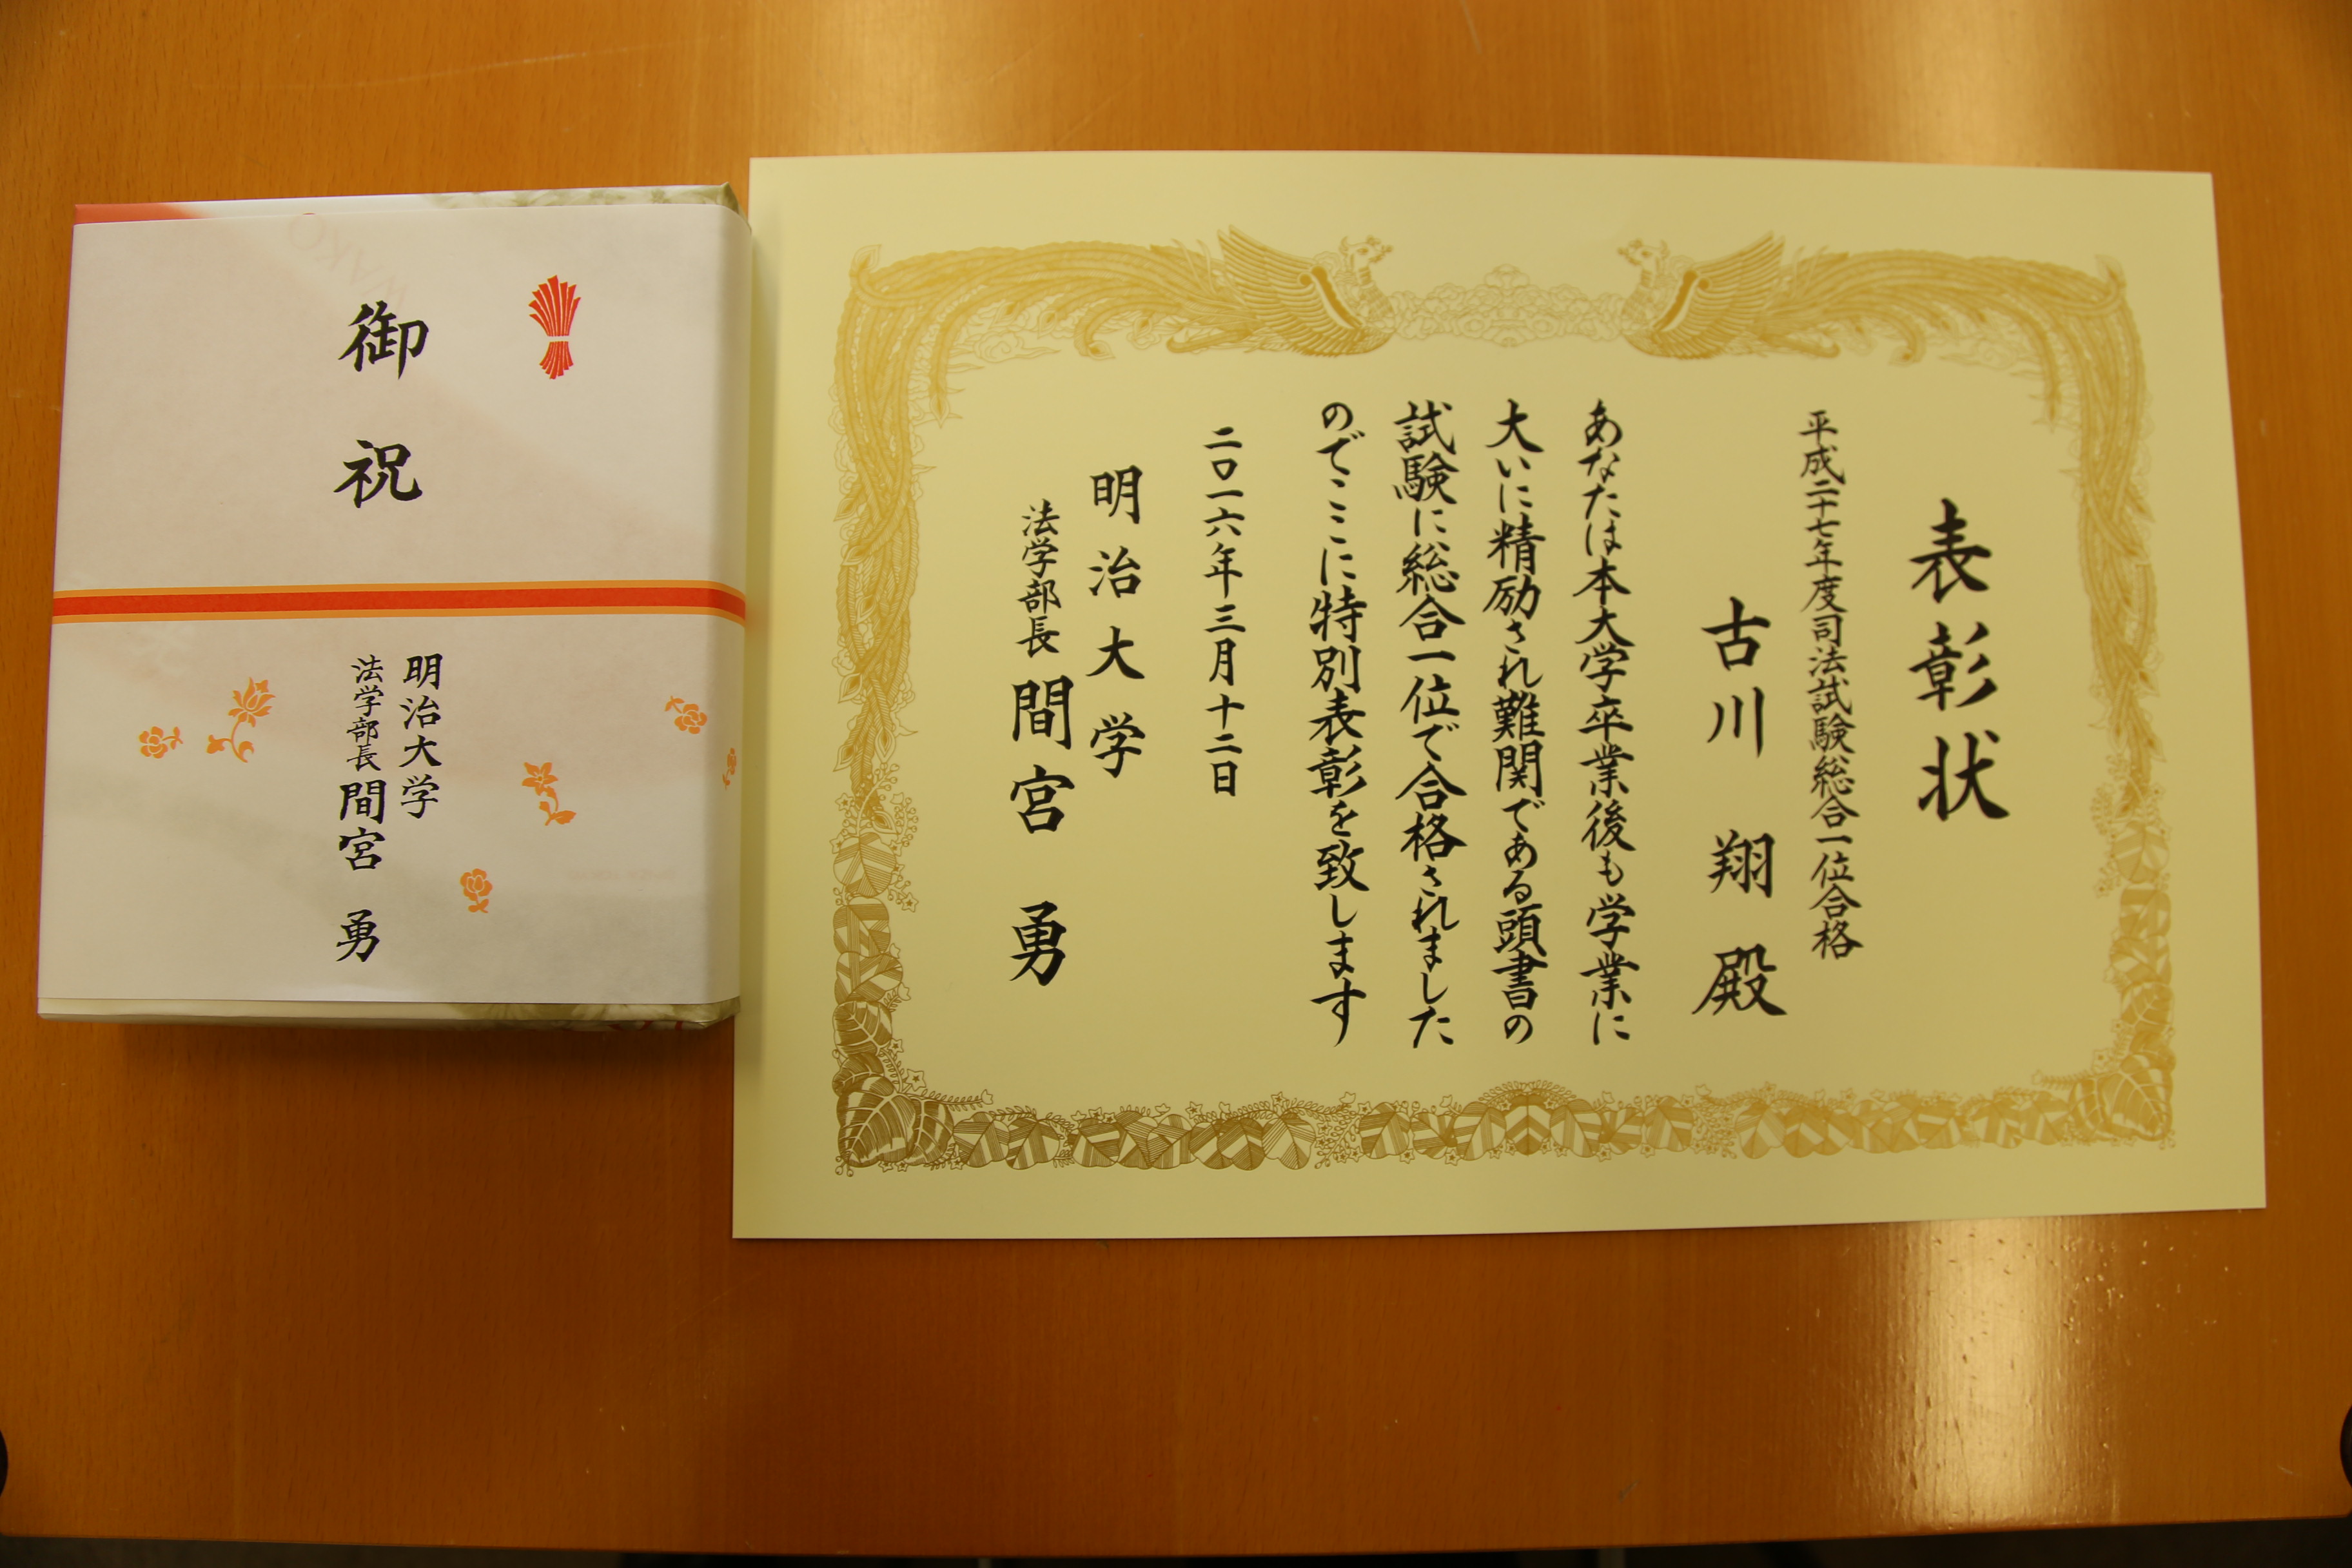 表彰状
平成二十七年度司法試験総合一位合格
古川 翔 殿
あなたは本大学卒業後も学業に
大いに精励され難関である頭書の
試験に総合一位で合格されました
のでここに特別表彰を致します
二〇一六年三月十二日
明治大学
法学部長 間宮 勇
御祝
明治大学
法学部長 間宮 勇
WAKO